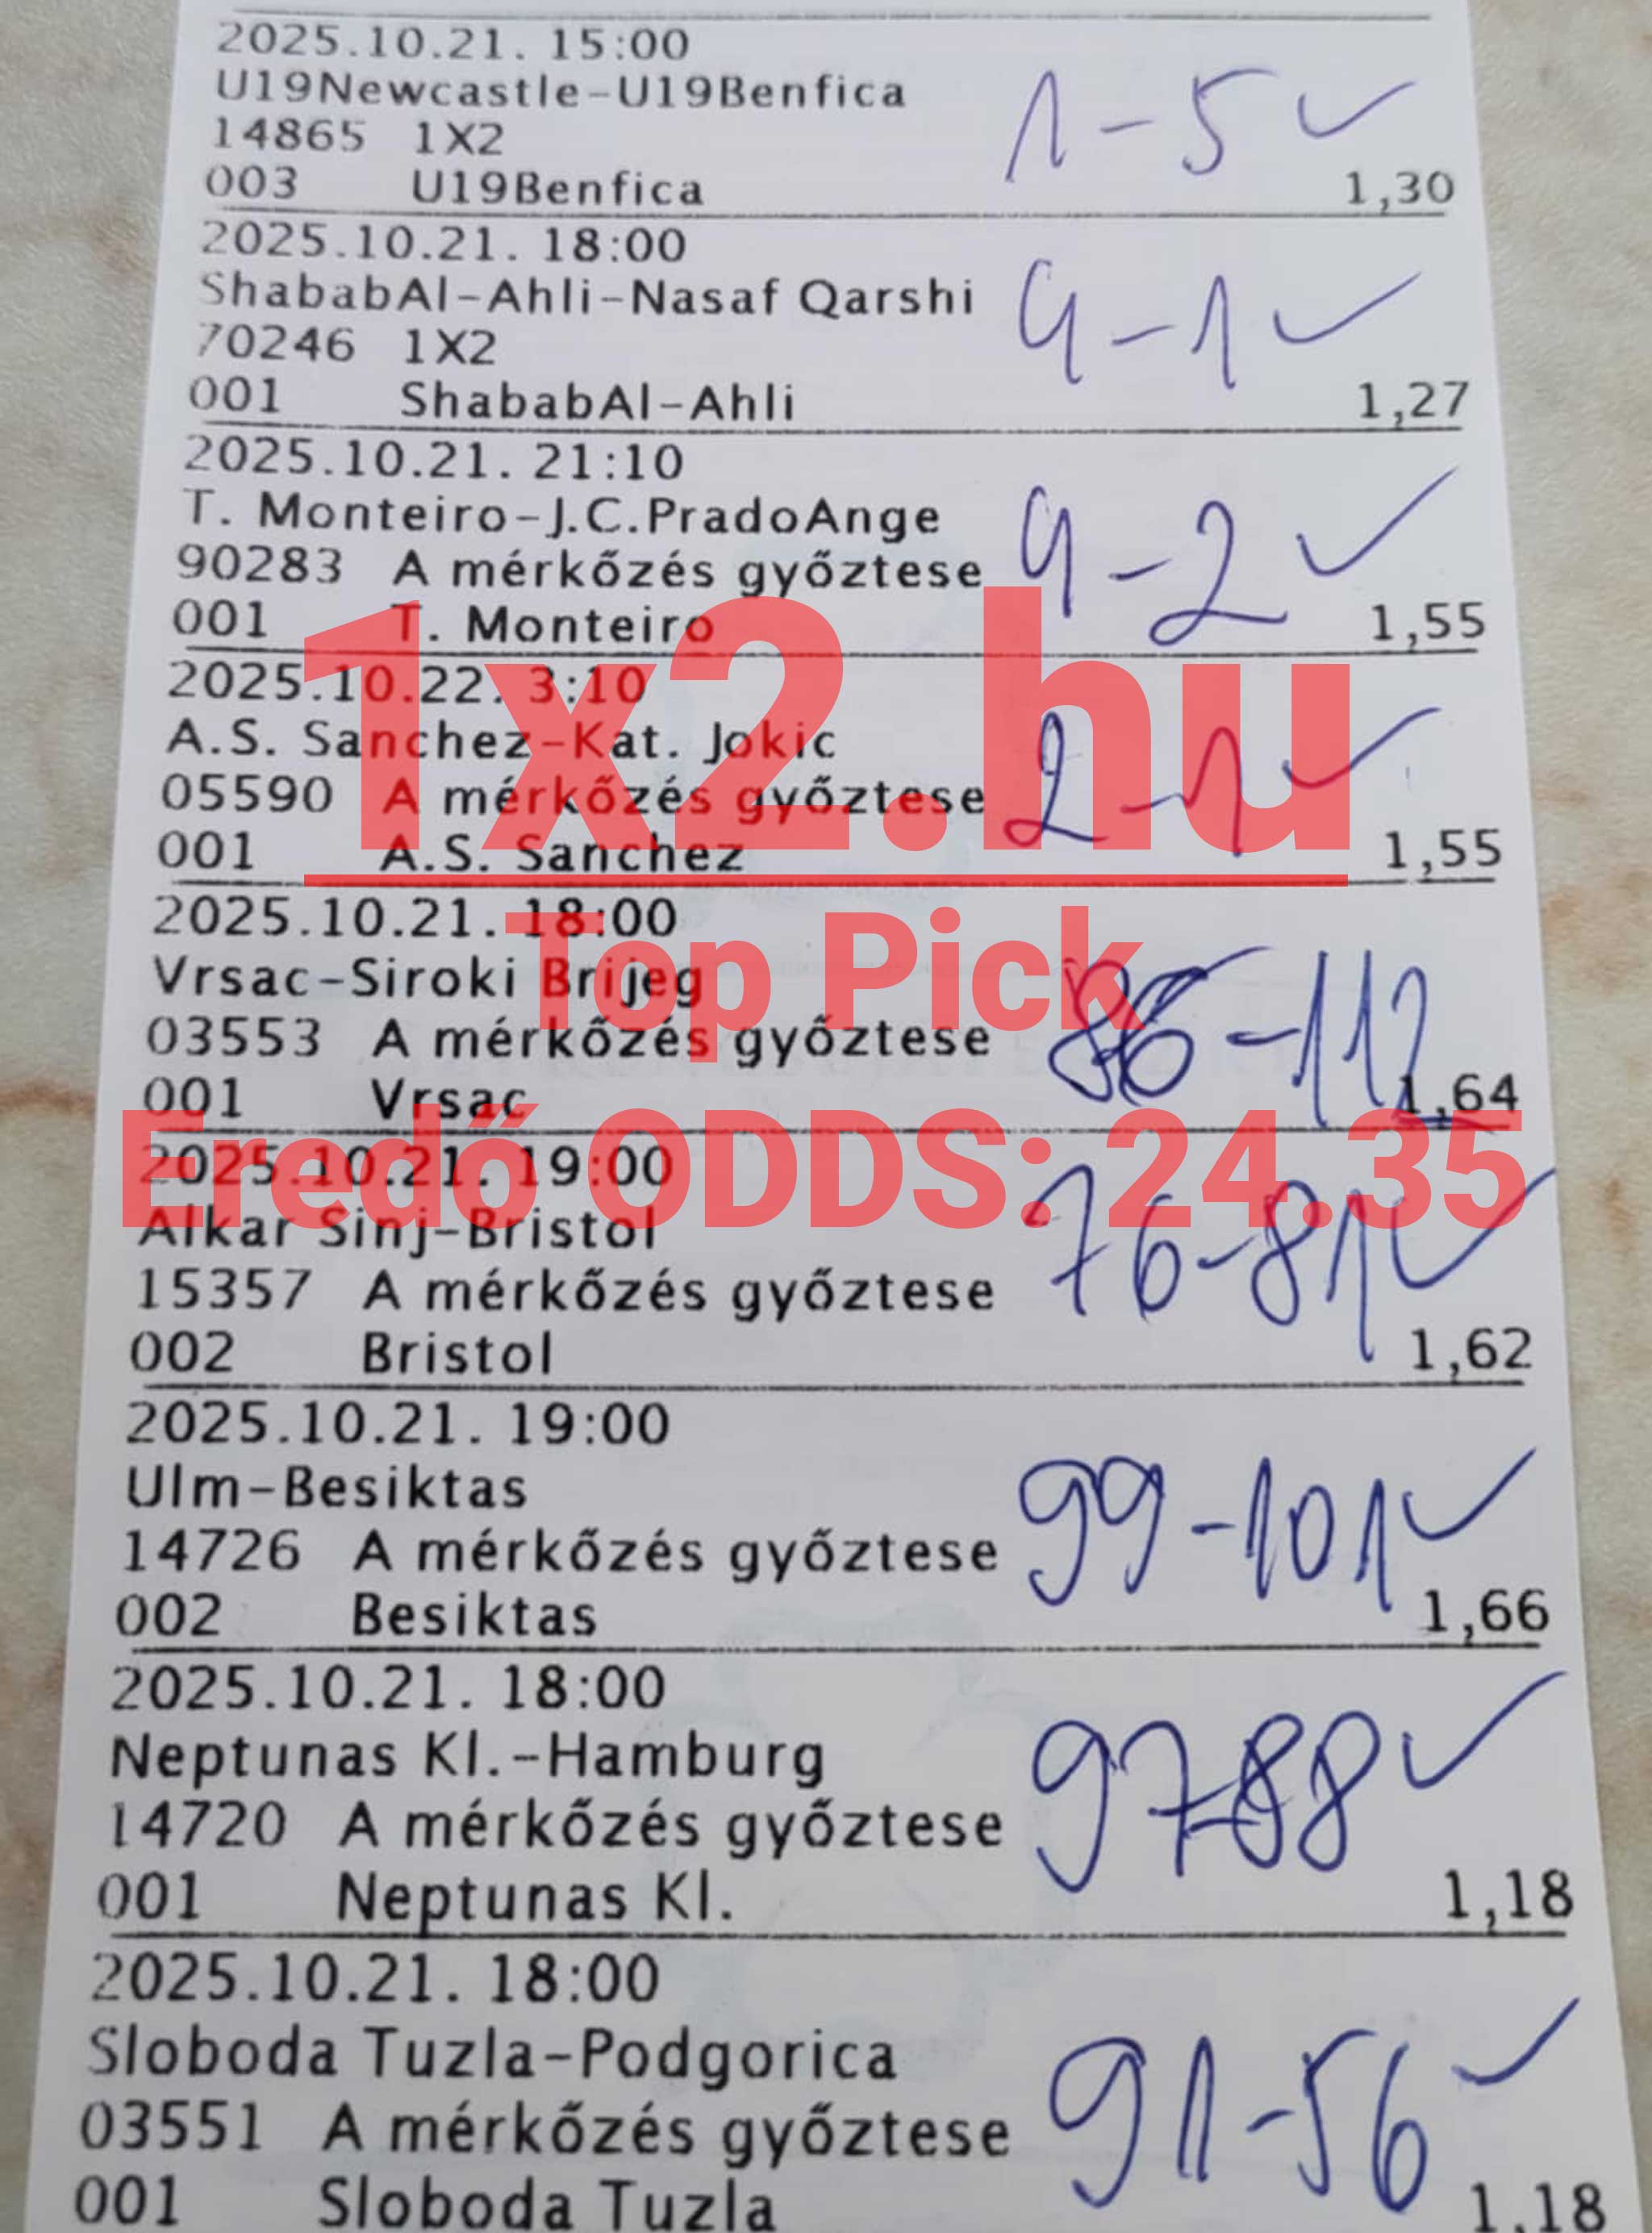 2025.10.21. 15:00
U19Newcastle-U19Benfica
14865 1X2
1-5 ✓
003 U19Benfica 1,30
2025.10.21. 18:00
ShababAl-Ahli-Nasaf Qarshi
70246 1X2
4-1 ✓
001 ShababAl-Ahli 1,27
2025.10.21. 21:10
T. Monteiro-J.C.PradoAnge
90283 A mérkőzés győztese
4-2 ✓
001 T. Monteiro 1,55
1x2.hu
2025.10.22. 3:10
A.S. Sanchez-Kat. Jokic
05590 A mérkőzés győztese
2-1 ✓
001 A.S. Sanchez 1,55
Top Pick
2025.10.21. 18:00
Vrsac-Siroki Brijeg
03553 A mérkőzés győztese
86-112
001 Vrsac 1,64
Eredő ODDS: 24.35
2025.10.21. 19:00
Alkar Sinj-Bristol
15357 A mérkőzés győztese
76-81 ✓
002 Bristol 1,62
2025.10.21. 19:00
Ulm-Besiktas
14726 A mérkőzés győztese
99-101 ✓
002 Besiktas 1,66
2025.10.21. 18:00
Neptunas Kl.-Hamburg
14720 A mérkőzés győztese
97-88 ✓
001 Neptunas Kl. 1,18
2025.10.21. 18:00
Sloboda Tuzla-Podgorica
03551 A mérkőzés győztese
91-56 ✓
001 Sloboda Tuzla 1,18